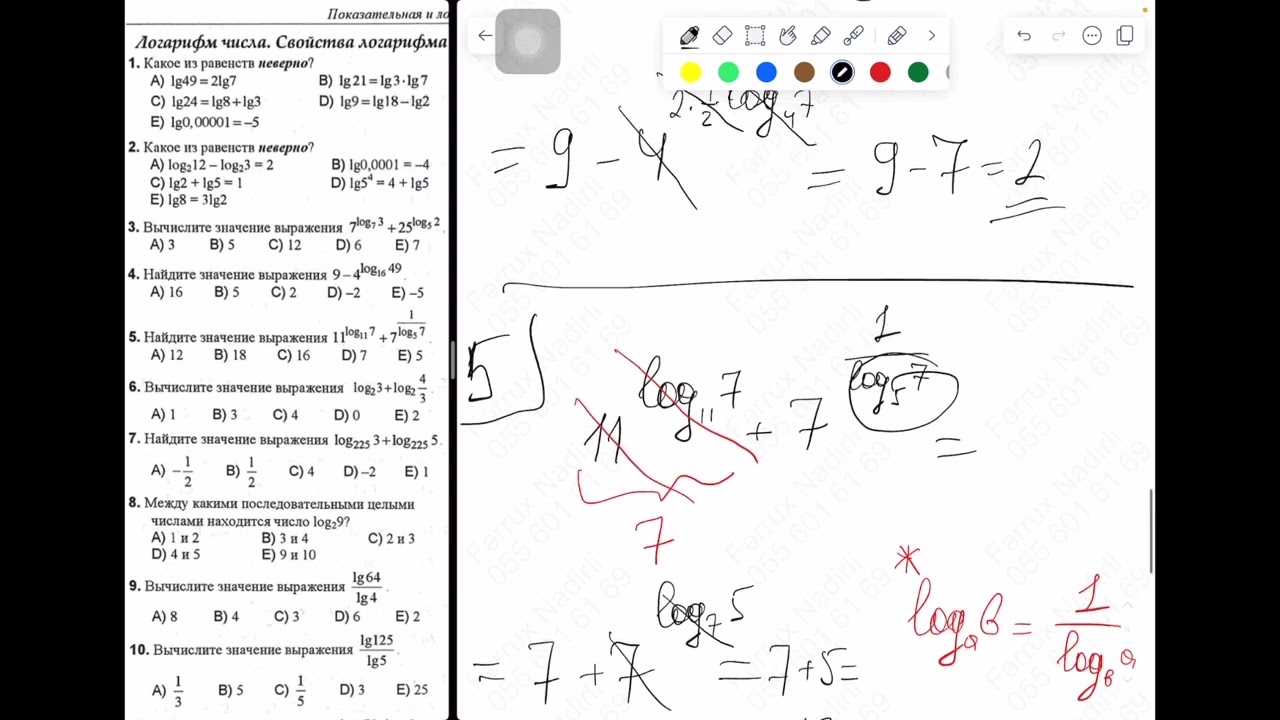 Показательная и ло
Логарифм числа. Свойства логарифма
1. Какое из равенств неверно?
A) lg49 = 2lg7 B) lg21 = lg3·lg7
C) lg24 = lg8 + lg3 D) lg9 = lg18 – lg2
E) lg0,00001 = –5
2. Какое из равенств неверно?
A) log₂12 – log₂3 = 2 B) lg0,0001 = –4
C) lg2 + lg5 = 1 D) lg5⁴ = 4 + lg5
E) lg8 = 3lg2
3. Вычислите значение выражения 7^(log₇3) + 25^(log₅2).
A) 3 B) 5 C) 12 D) 6 E) 7
4. Найдите значение выражения 9 – 4^(log₁₆49).
A) 16 B) 5 C) 2 D) –2 E) –5
5. Найдите значение выражения 11^(log₁₁7) + 7^(1/log₅7).
A) 12 B) 18 C) 16 D) 7 E) 5
6. Вычислите значение выражения log₂3 + log₂ 4/3.
A) 1 B) 3 C) 4 D) 0 E) 2
7. Найдите значение выражения log₂₂₅ 3 + log₂₂₅ 5.
A) –1/2 B) 1/2 C) 4 D) –2 E) 1
8. Между какими последовательными целыми
числами находится число log₂9?
A) 1 и 2 B) 3 и 4 C) 2 и 3
D) 4 и 5 E) 9 и 10
9. Вычислите значение выражения lg64/lg4.
A) 8 B) 4 C) 3 D) 6 E) 2
10. Вычислите значение выражения lg125/lg5.
A) 1/3 B) 5 C) 1/5 D) 3 E) 25
= 9 – 4^(2·1/2 log₄7) = 9 – 7 = 2
5
11^(log₁₁7) + 7^(1/log₅7) =
7
= 7 + 7^(log₇5) = 7 + 5 =
* logₐb = 1/log_b a
Fərrux Nadirli
055 601 61 69